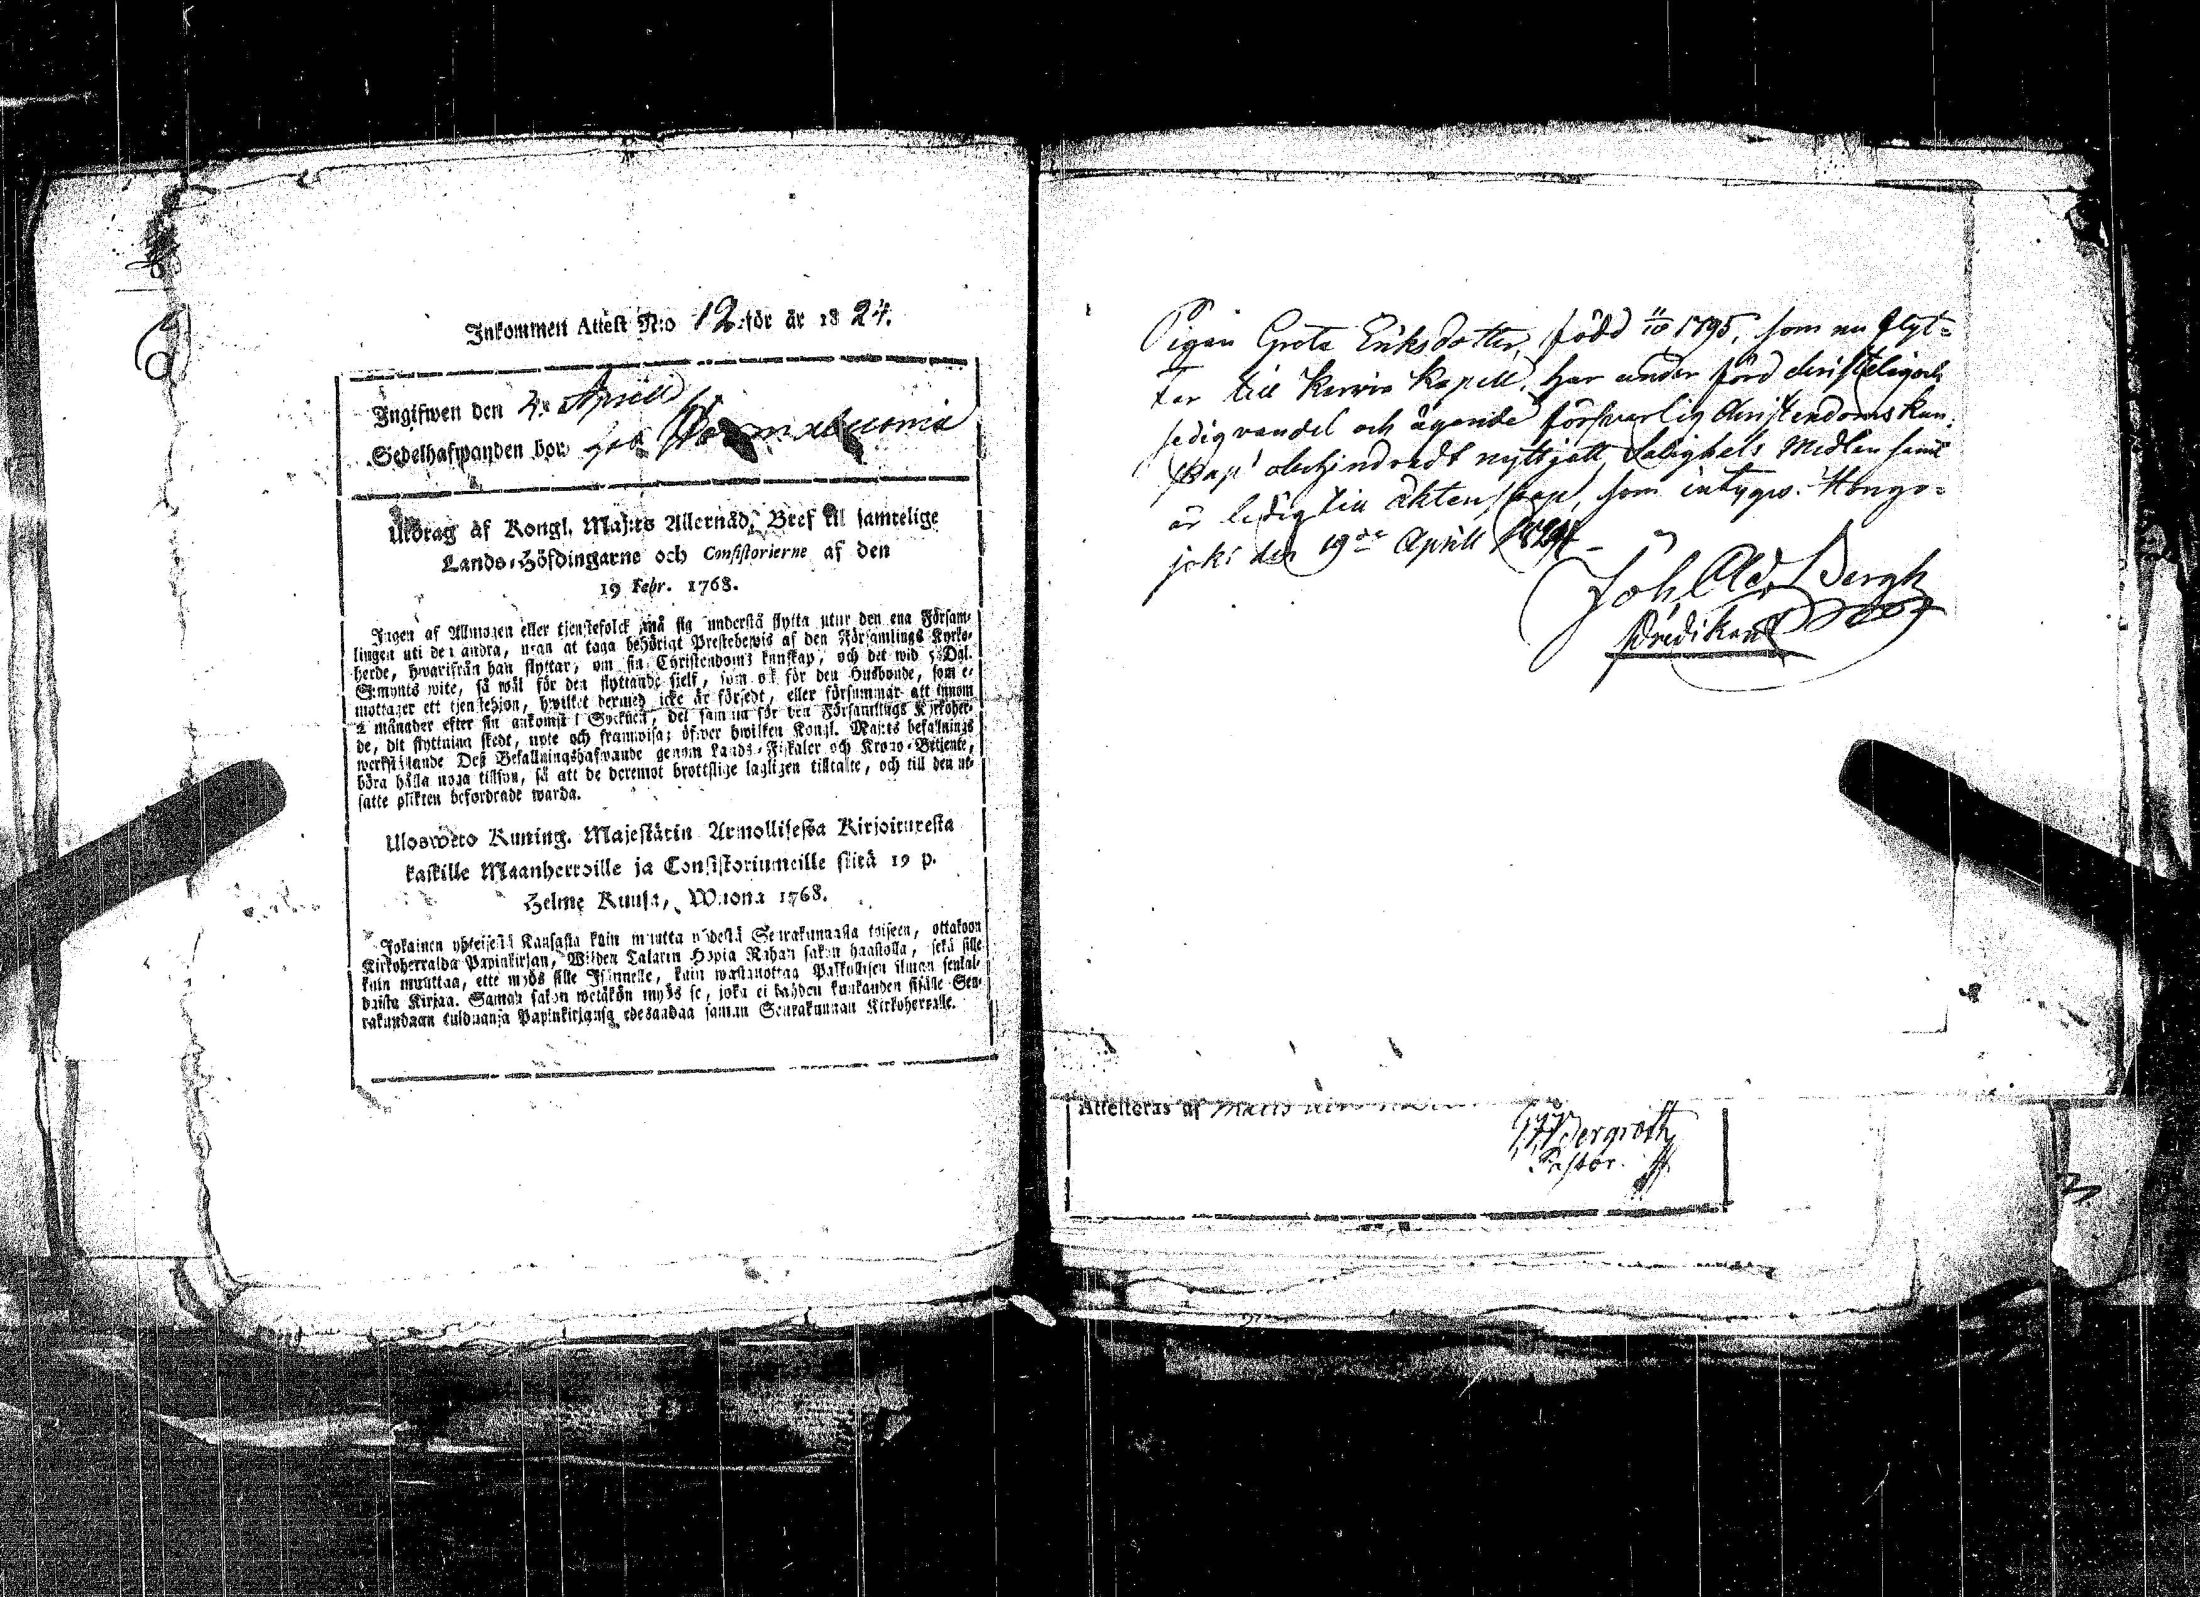 Inkommen Attest N:o 12 för år 1824.
Ingifwen den 4 Aprill
Sedelhafwanden bor hos
Utdrag af Kongl. Maj:ts Allernåd. Bref til samtelige
Lands-Höfdingarne och Consistorierne af den
19 Febr. 1768.
Ingen af Allmogen eller tjenstefolck må sig understå flytta utur den ena Försam-
lingen uti den andra, utan at taga behörigt Prestebewis af den Församlings Kyrko-
herde, hwarifrån han flyttar, om sin Christendoms kunskap, och det wid 5 Dal.
S:mynts wite, så wäl för den flyttande sjelf, som ock för den Husbonde, som e-
mottager ett tjenstehjon, hwilket dermed icke är försedt, eller försummar att innom
2 månader efter sin ankomst i Socknen, det samma för den Församlings Kyrkoher-
de, dit flyttning skedt, upte och framwisa; öfwer hwilken Kongl. Maj:ts befallnings
werkställande Deß Befallningshafwande genom Lands-Fiskaler och Krono-Betjente,
böra hålla noga tillsyn, så att de deremot brottslige lagligen tilltalte, och till den ut-
satte plikten befordrade warda.
Uloswето Kuning. Majestätin Armollisesta Kirjoituxesta
kaikille Maanherroille ja Consistoriumeille siitä 19 p.
Helme Kuusa, Wuonna 1768.
Jokainen yhteisestä Kansasta kuin muutta yhdestä Seurakunnasta toiseen, ottakoon
Kirkoherralda Papinkirjan, Wiiden Talarin Hopia Rahan sakon haastolla, sekä sille
kuin muuttaa, ette myös sille Isännelle, kuin wastanottaa Palkollisen ilman senkal-
daista Kirjaa. Saman sakon wetäkön myös se, joka ei kahden kuukauden sisälle Seu-
rakundaan tulduansa Papinkirjansa edesandaa saman Seurakunnan Kirkoherralle.
Pigan Greta Eriksdotter, född 11/10 1795, som nu flyt-
tar till Kervia Kapell, har under förd christelig och
sedig vandel och ägande försvarlig Christendoms kun-
skap obehindradt nyttjatt Salighets Medlen samt
är ledig till äktenskap, som intygas. Hongo-
joki den 19de Aprill 1824
Joh. Ad. Bergh
Predikant
Attesteras af
Bergroth
Pastor.